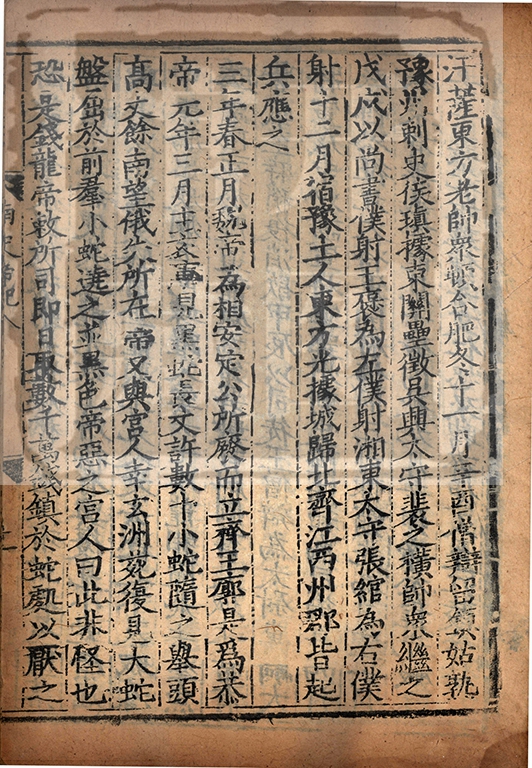 汗薩東方老師衆頓合肥冬十一月辛酉僧辯留鎮姑孰
豫州刺史侯瑱據東關壘徵吳興太守裴之橫帥衆繼之
戊戌以尚書僕射王襃為左僕射湘東太守張綰為右僕
射十二月宿豫土人東方光據城歸北齊江西州郡皆起
兵應之
三年春正月魏帝為相安定公所廢而立齊王廓是為恭
帝元年三月主衣庫見黑蛇長丈許數十小蛇隨之舉頭
高丈餘南望俄失所在帝又與宮人幸玄洲苑復見大蛇
盤屈於前羣小蛇遶之並黑色帝惡之宮人曰此非怪也
恐是錢龍帝敕所司即日取數千萬錢鎮於蛇處以厭之